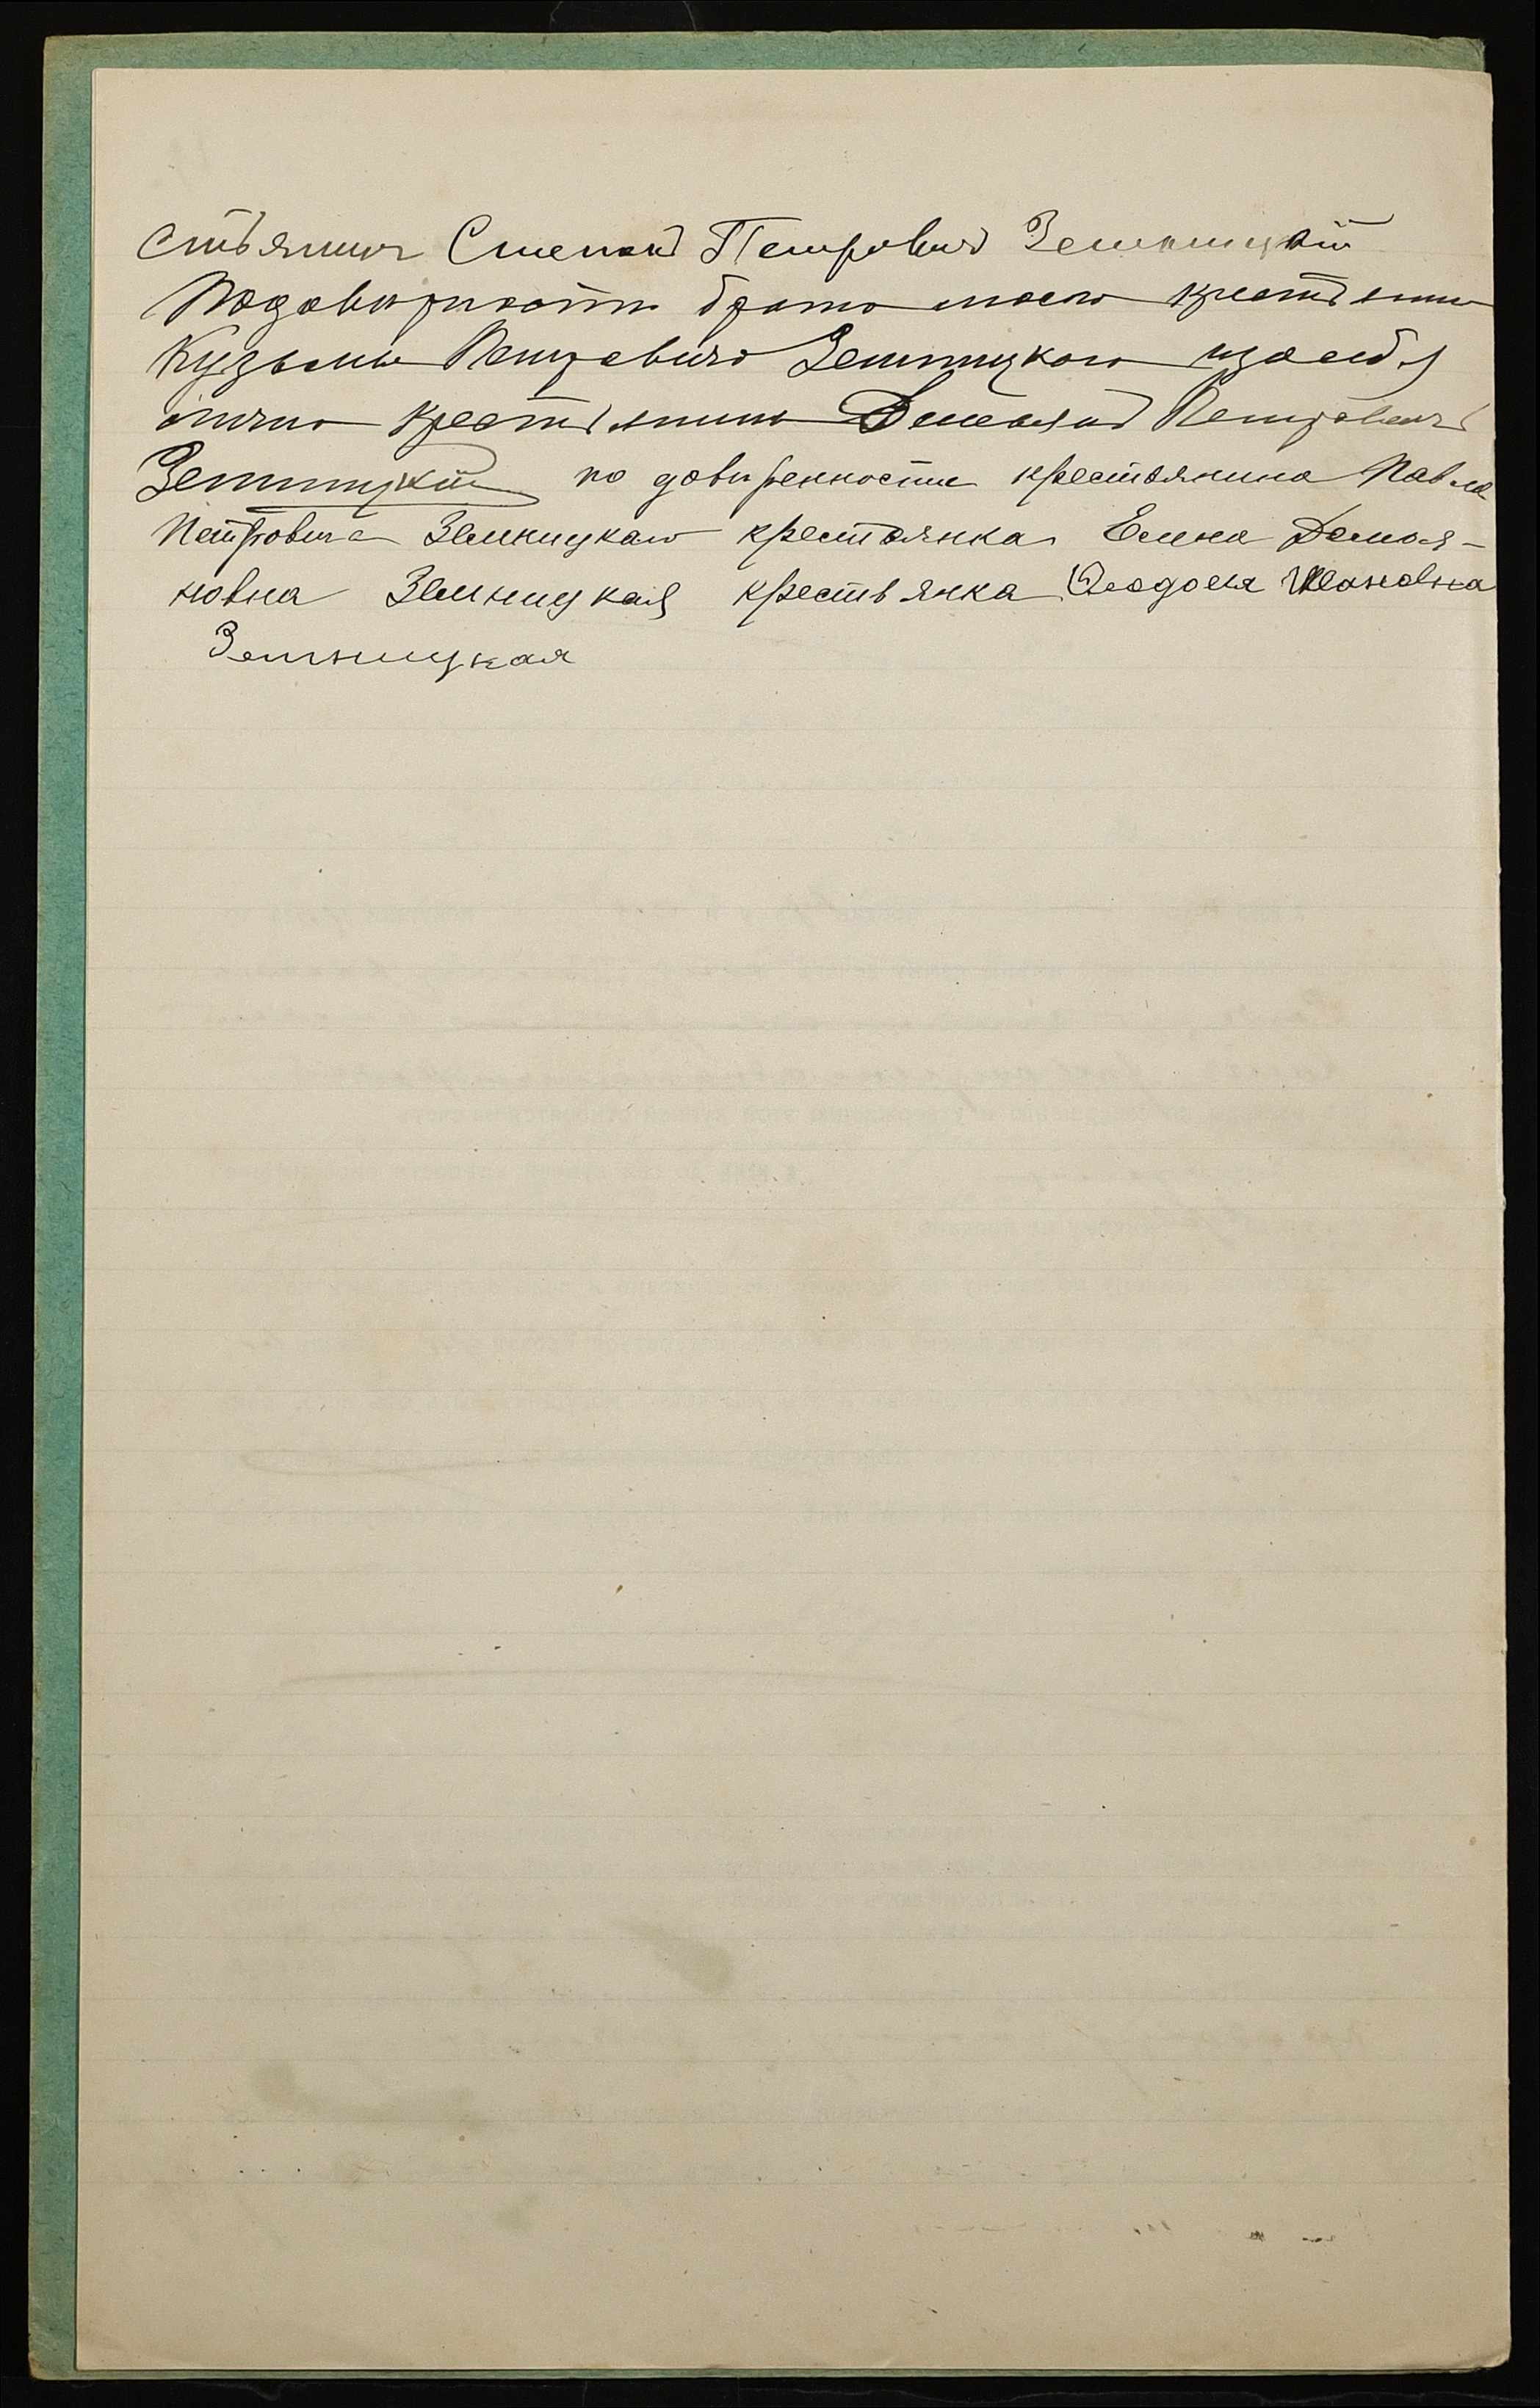 стьянин Степанъ Петровичъ Земницкій
Подовѣрености брата моего крестьянина
Кузьмы Петровича Земницкого изасебя
лично крестьянинъ Демьянъ Петровичъ
Земницкій по довѣренности крестьянина Павла
Петровича Земницкаго крестьянка Елена Демья-
новна Земницкая крестьянка Феодосия Ивановна
Земницкая